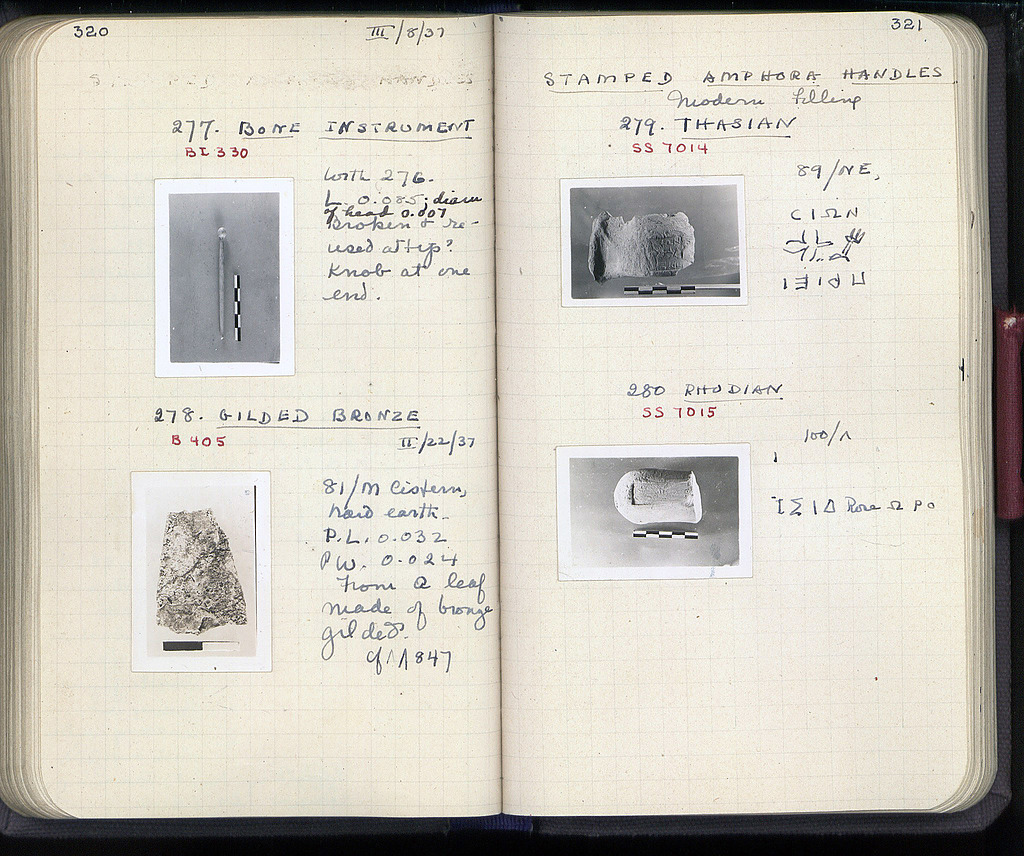 320
III/8/37
277. BONE INSTRUMENT
BI 330
With 276.
L. 0.085; diam
of head 0.007
Broken & re-
used at tip?
Knob at one
end.
278. GILDED BRONZE
B 405
II/22/37
81/M Cistern,
hard earth.
P.L. 0.032
PW. 0.024
From a leaf
made of bronze
gilded.
cf
847
321
STAMPED AMPHORA HANDLES
Modern filling
279. THASIAN
SS 7014
89/NE,
CΙΩΝ
280 RHODIAN
SS 7015
100/Λ
ΙΣΙΔ Rose ΩΡΟ